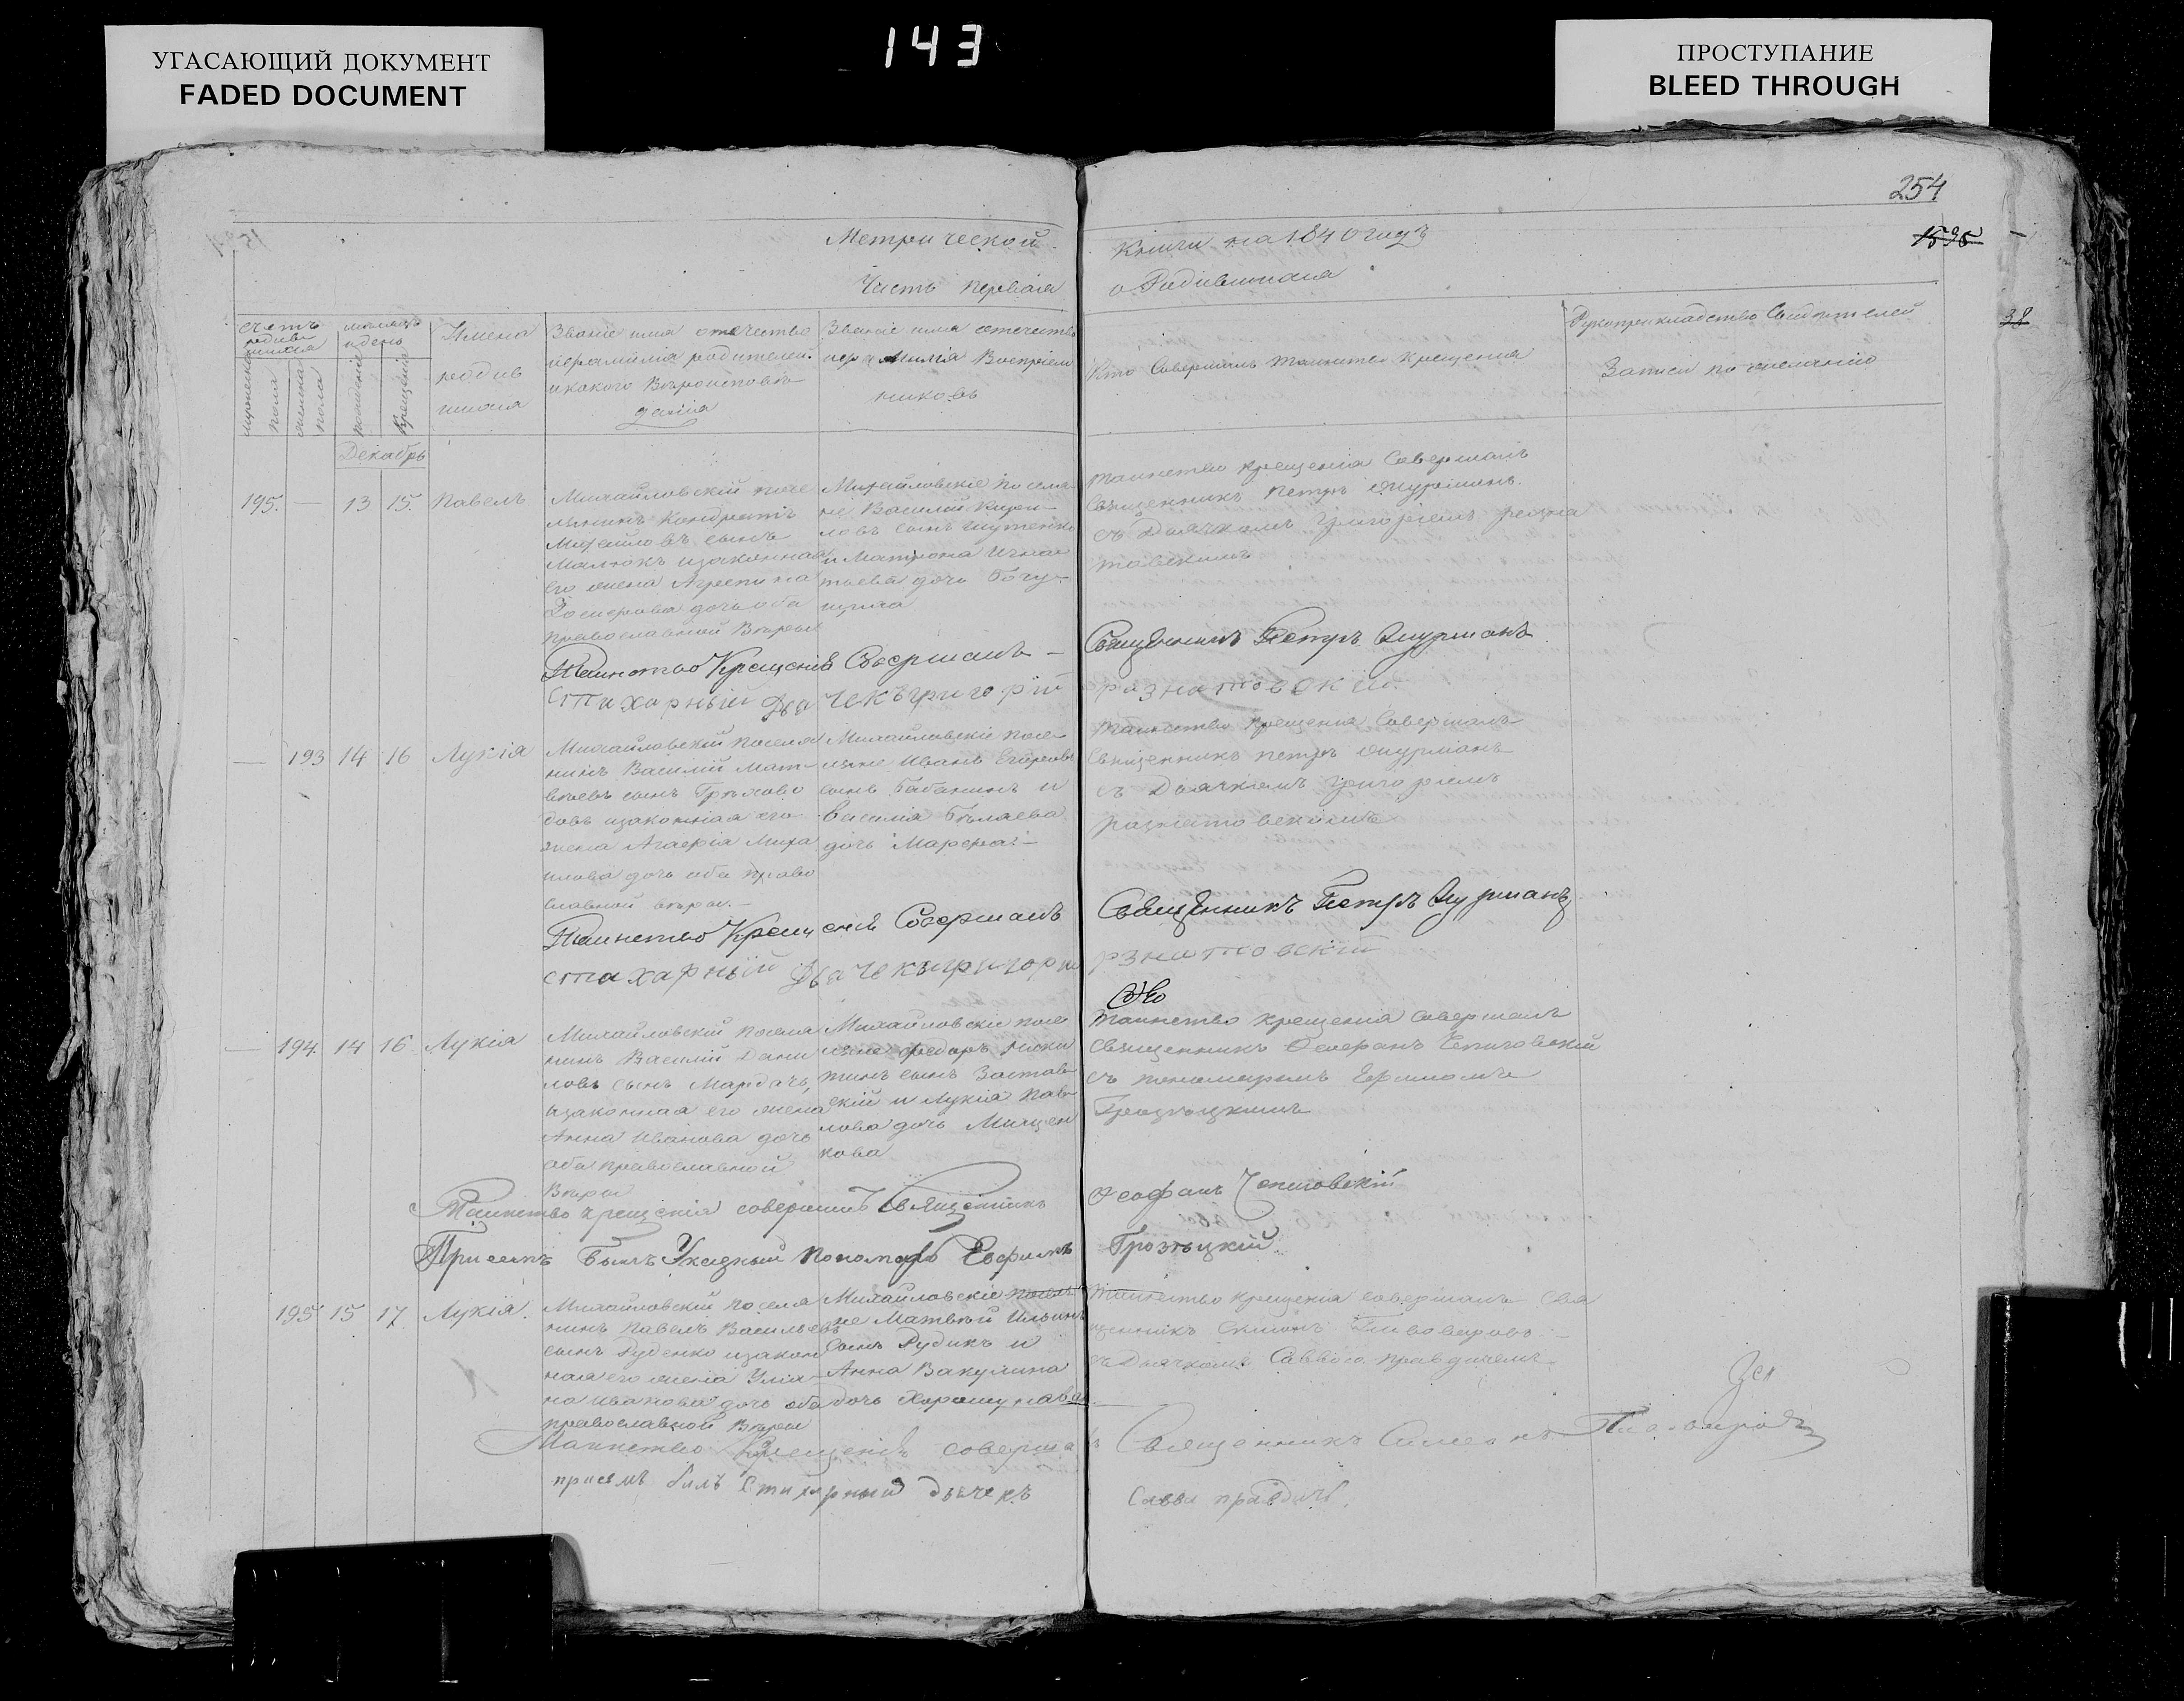 УГАСАЮЩИЙ ДОКУМЕНТ
FADED DOCUMENT
143
ПРОСТУПАНИЕ
BLEED THROUGH
254
1595
38
Метрической
Книги на 1840 годъ
Часть первая
о Родившихся
счетъ родившихся
мужеска пола
женска пола
месяцъ и день
рожденія
крещенія
Имена
родив
шихся
Званіе имя отечество
и фамилія родителей
и какого Вѣроисповѣ
данія
Званіе имя отечество
и фамилія Воспріем
никовъ
Кто Совершалъ таинство крещенія
Рукоприкладство Свидѣтелей
Записи по желанію
Декабрь
195. — 13 15. Павелъ
Михайловскій посе
лянинъ Кондратъ
Михайловъ сынъ
Малюкъ изаконная
его жена Агрепина
дочь оба
православной Вѣры
Михайловскіе поселя
не Василій Кири
ловъ сынъ
и Матрона Игна
тьева дочь
Таинство крещенія Совершалъ
Священникъ Петръ
съ Дьячкомъ Григоріемъ
Таинство Крещенія Совершалъ
Священникъ Петръ
Стихарный Дьячекъ Григорій
— 193 14 16 Лукія
Михайловскій поселя
нинъ Василій Мат
вѣевъ сынъ Грѣхово
довъ изаконная его
жена Агафія Миха
илова дочь оба право
славной вѣры.
Михайловскіе посе
ляне Иванъ Егоровъ
сынъ Бабанинъ и
дочь
Таинство крещенія Совершалъ
Священникъ Петръ
съ Дьячкомъ Григоріемъ
Таинство Крещенія Совершалъ
Священникъ Петръ
стихарный Дьячекъ Григорій
— 194. 14 16 Лукія
Михайловскій поселя
нинъ Василій Дани
ловъ сынъ Мардачь,
изаконная его жена
Анна Иванова дочь
оба православной
Вѣры
Михайловскіе посе
ляне Федоръ Ники
тинъ сынъ Застав
скій и Лукія Пав
лова дочь Мищен
кова
Таинство крещенія Совершалъ
священникъ Феофанъ
съ пономаремъ Ефимомъ
Таинство крещенія совершилъ Священникъ
Феофанъ
При семъ былъ Указный Пономарь Евфимъ
195 15 17 Лукія.
Михайловскій поселя
нинъ Павелъ Васильевъ
сынъ Руденко изакон
ная его жена Улія
на Иванова дочь оба
православной Вѣры
Михайловскіе поселя
не Матвѣй Ильинъ
сынъ Рудикъ и
Анна Вакулина
дочь Хорошунава
Таинство крещенія совершалъ Свя
щенникъ Симеонъ Пивоваровъ
съ Дьячкомъ Саввою
Таинство Крещенія соверша
Священникъ Симеонъ Пивоваровъ
присемъ былъ Стихарный дьячекъ
Савва